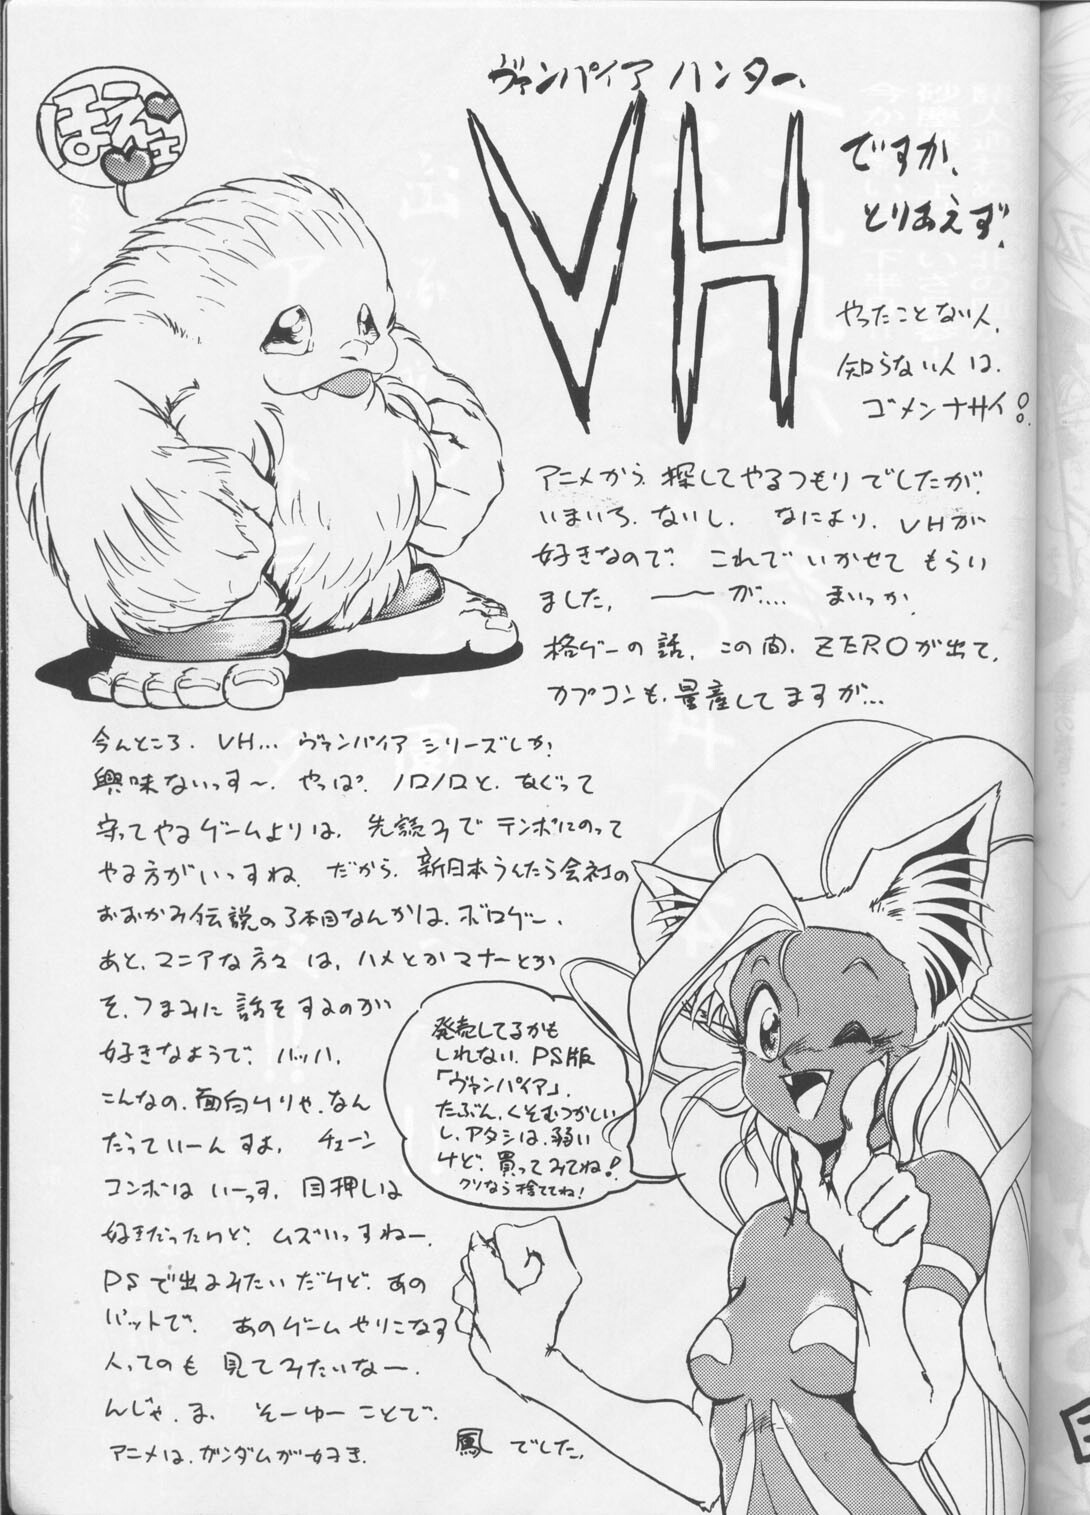 ほえェ
ヴァンパイア ハンター、
VH
ですか、
とりあえず、
やったことない人、
知らない人は、
ゴメンナサイ!!
アニメから、探してやるつもりでしたが、
いまいち、ないし、なにより、VHが
好きなので、これで いかせて もらい
ました。 ――が.... まいっか。
格ゲーの話、この間、ZEROが出て、
カプコンも、量産してますが...
今んところ、VH... ヴァンパイア シリーズしか、
興味ないっす〜、やっぱ、ノロノロと、なぐって
守ってやるゲームよりは、先読みでテンポにのって
やる方がいっすね、だから、新日本うんたら会社の
おおかみ伝説の3本目なんかは、ボロゲー、
あと、マニアな方々は、ハメとかマナーとか
そ、つまみに話をするのが
好きなようで、バッハ、
こんなの、面白けりゃ、なん
だっていーんすよ、チェーン
コンボは いーっす、目押しは
好きだったけど、ムズいっすねー、
PSで出るみたいだけど、あの
パットで、あのゲームやりこなす
人ってのも見てみたいなー、
んじゃ、ま、そーゆーことで、
アニメは、ガンダムが好き、
鳳 でした。
発売してるかも
しれない、PS版
「ヴァンパイア」、
たぶん、くそむつかしい
し、アタシは、弱い
けど、買ってみてね!
クソなら捨ててね!